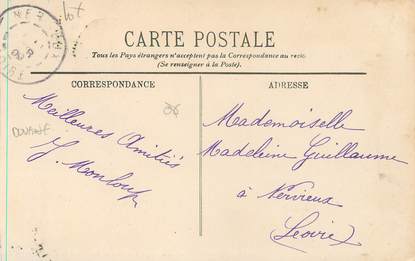 CARTE POSTALE
Tous les Pays étrangers n'acceptent pas la Correspondance au recto
(Se renseigner à la Poste).
CORRESPONDANCE
ADRESSE
Meilleures Amitiés
Mademoiselle
Madeleine Guillaume
à Nervieux
(Loire)